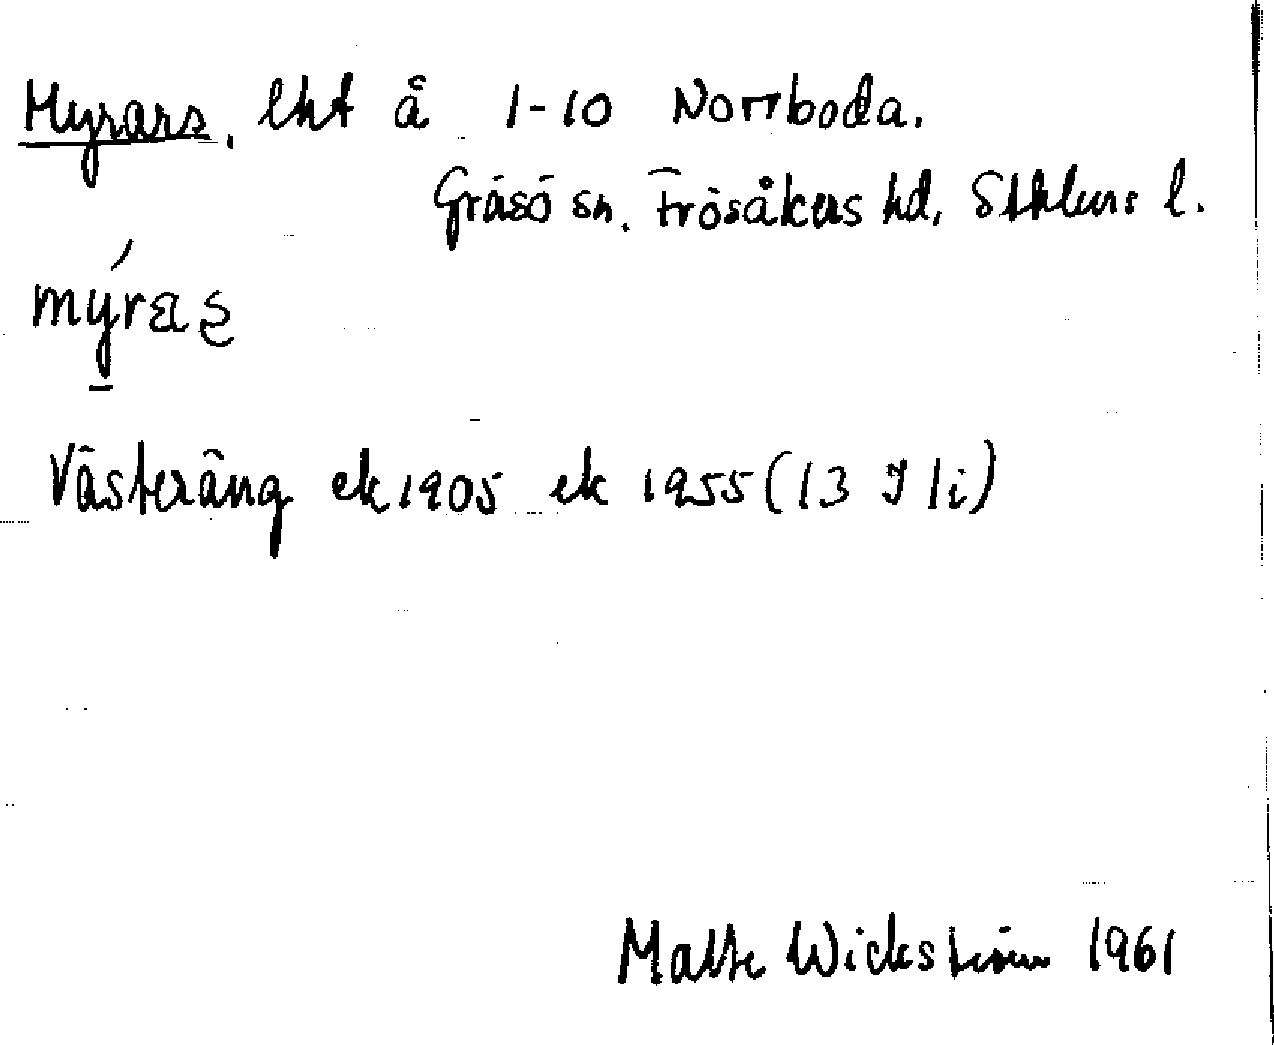 Myrars, lht å 1-10 Norrboda.
Gräsö sn. Frösåkers hd, Sthlms l.
mýras
Västeräng ek 1905 ek 1955 (13 I 1i)
Malte Wickström 1961